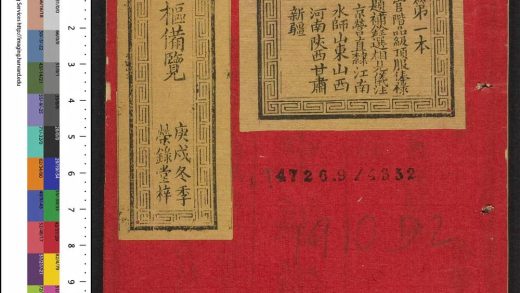 第一本
官階品級頂服俸祿
題補銓選相見儀注
京營直隸江南
水師山東山西
河南陝西甘肅
新疆
樞備覽
庚戌冬季
榮錄堂梓
4726.9/4352
1910
Services http://imaging.harvard.edu
2
3
4
5
6
7
8
9